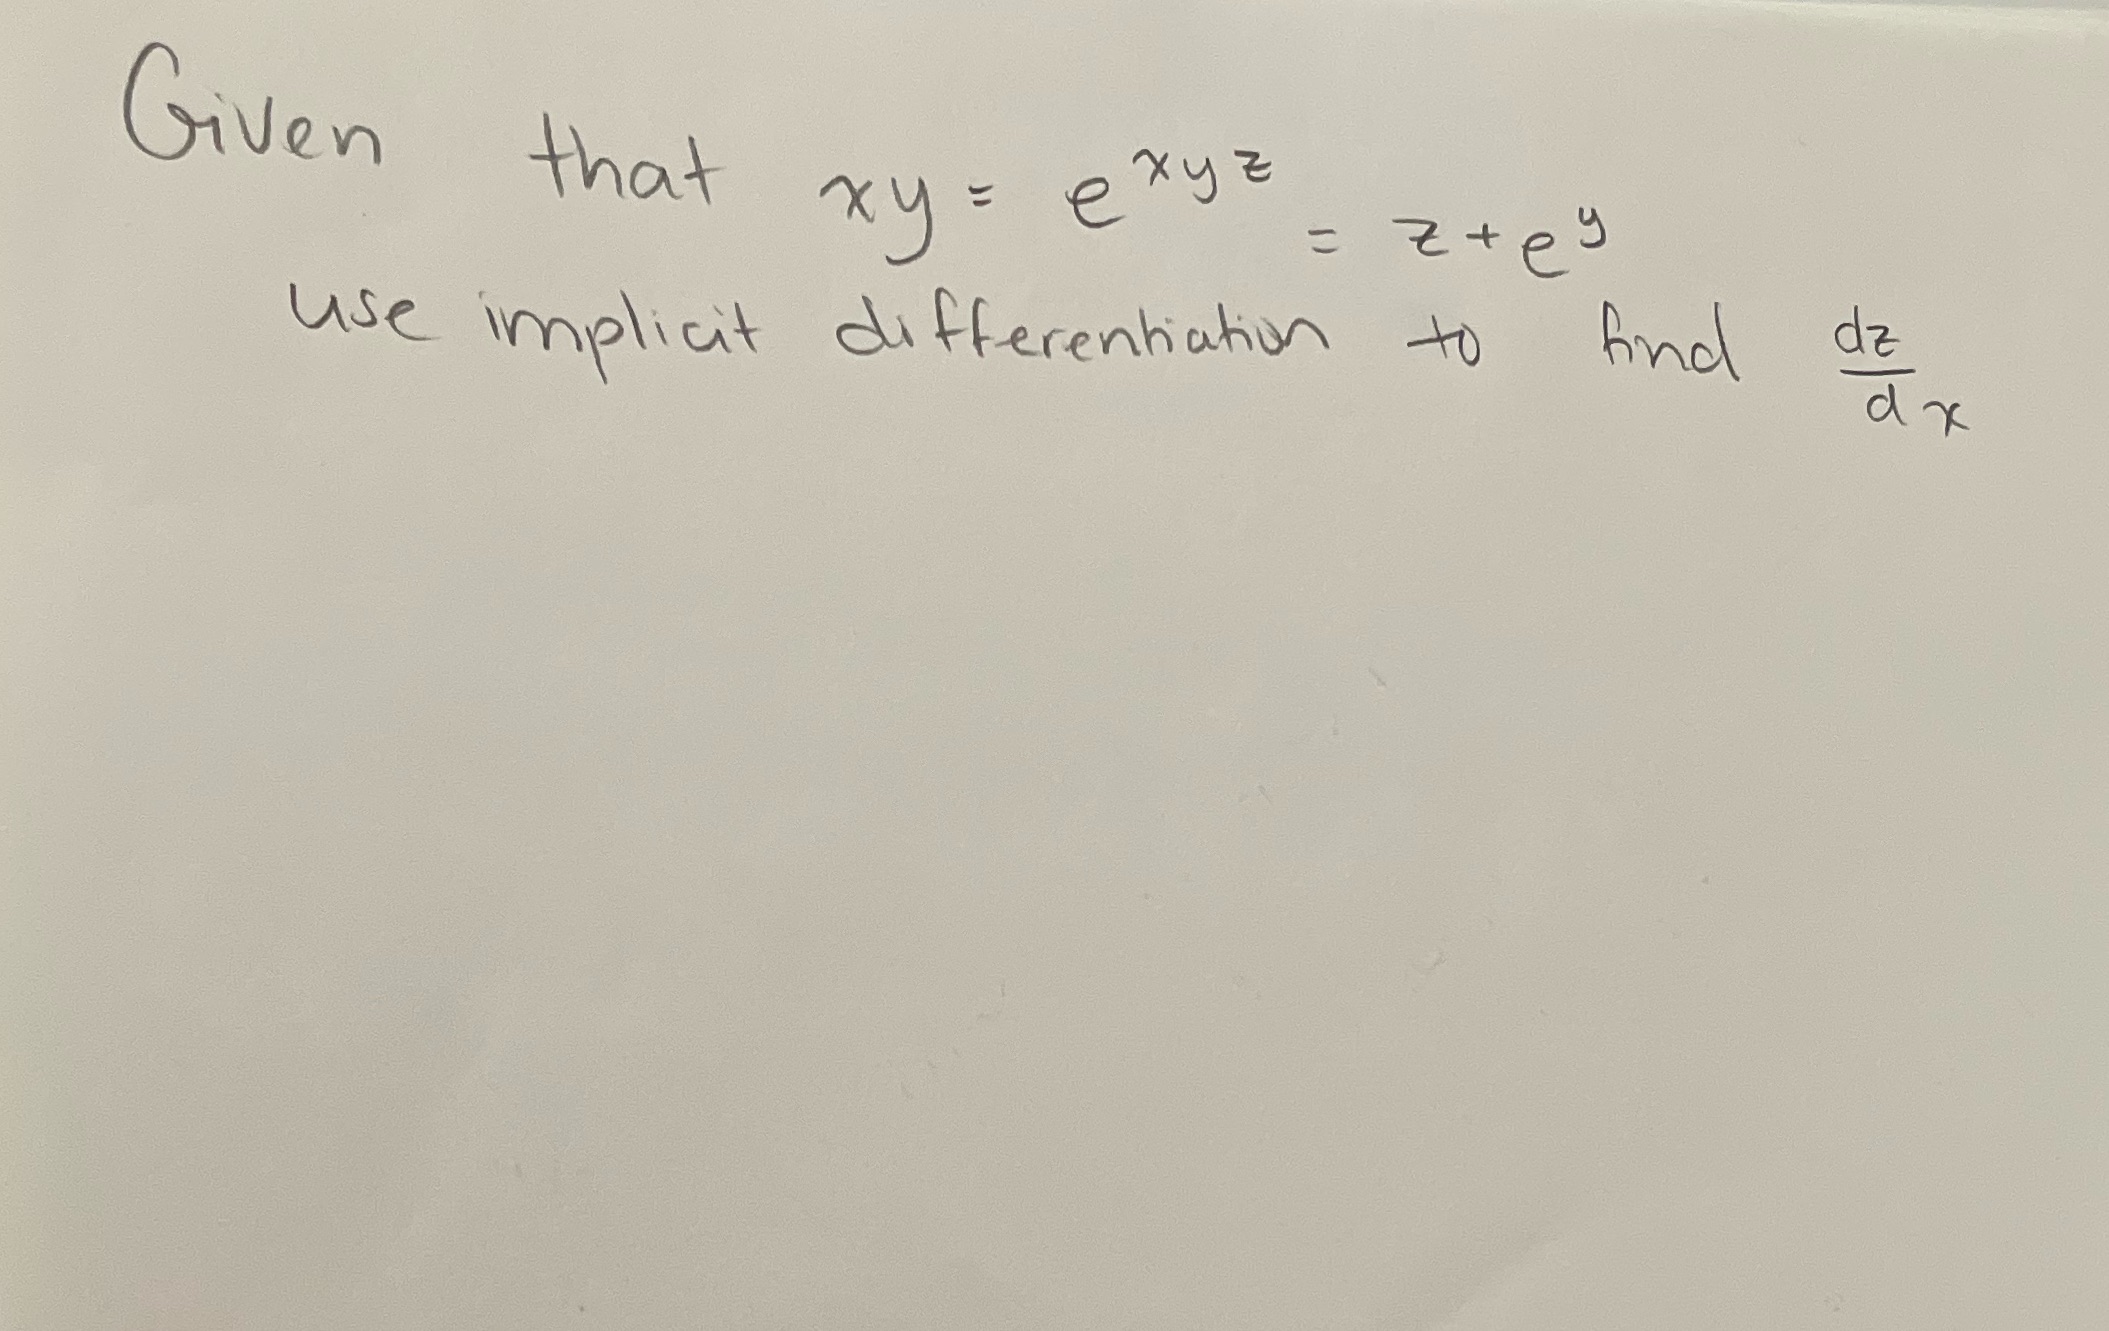 Given that xy = e^{xyz} = z + e^y
use implicit differentiation to find dz/dx